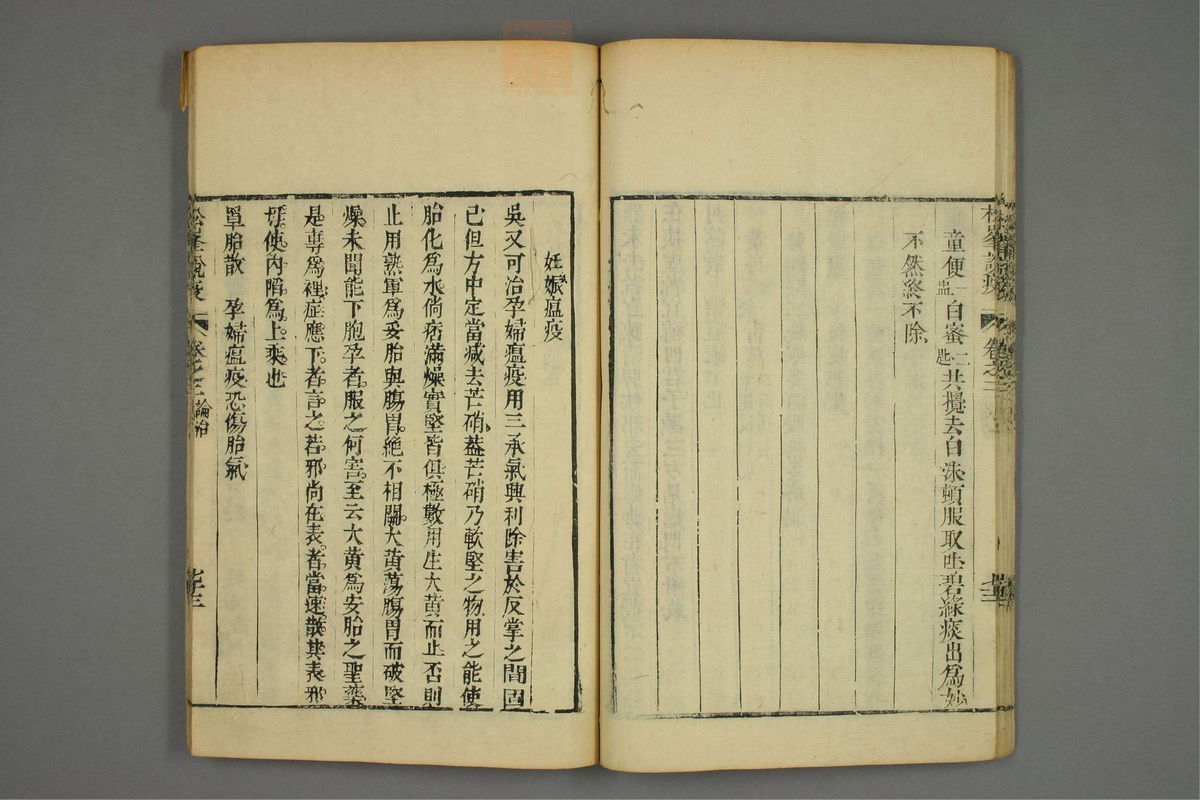 童便一盅白蜜二匙共攪去白沫頓服取吐碧綠痰出爲妙
不然終不除
松峯說疫
卷之三
妊娠瘟疫
吳又可治孕婦瘟疫用三承氣興利除害於反掌之間固
已但方中定當减去芒硝葢芒硝乃軟堅之物用之能使
胎化爲水倘痞滿燥實堅皆俱極數用生大黃而止否則
止用熟軍爲妥胎與腸胃絕不相關大黃蕩腸胃而破堅
燥未聞能下胞孕者服之何害至云大黃爲安胎之聖藥
是專爲裡症應下者言之若邪尚在表者當速散其表邪
毋使內陷爲上乘也
罩胎散　孕婦瘟疫恐傷胎氣
松峯說疫
卷之三論治